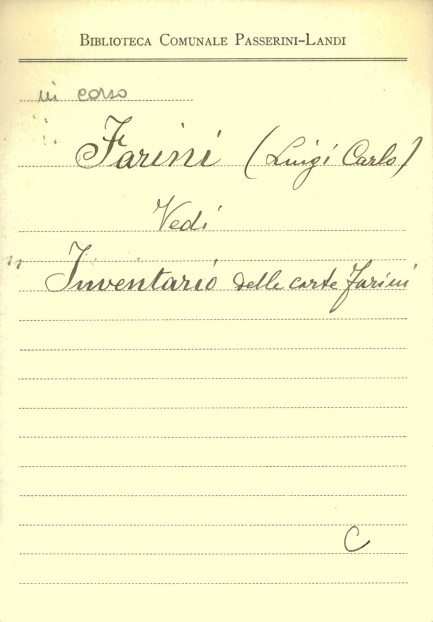 BIBLIOTECA COMUNALE PASSERINI-LANDI
in corso
Farini (Luigi Carlo)
Vedi
Inventario delle carte Farini
C